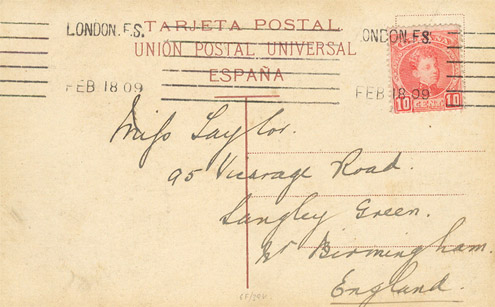 LONDON. F.S.
FEB 18 09
TARJETA POSTAL
UNIÓN POSTAL UNIVERSAL
ESPAÑA
LONDON. F.S.
FEB 18 09
10 10
Miss Taylor.
95 Vicarage Road.
Langley Green.
Nr Birmingham.
England.